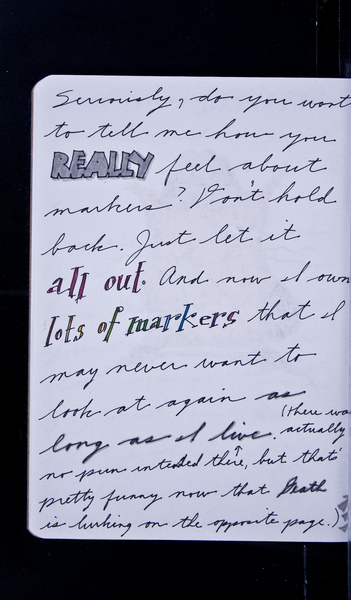 Seriously, do you want
to tell me how you
REALLY feel about
markers? Don't hold
back. Just let it
all out. And now I own
lots of markers that I
may never want to
look at again as
long as I live. (there was
actually
no pun intended there, but that's
pretty funny now that Death
is lurking on the opposite page.)